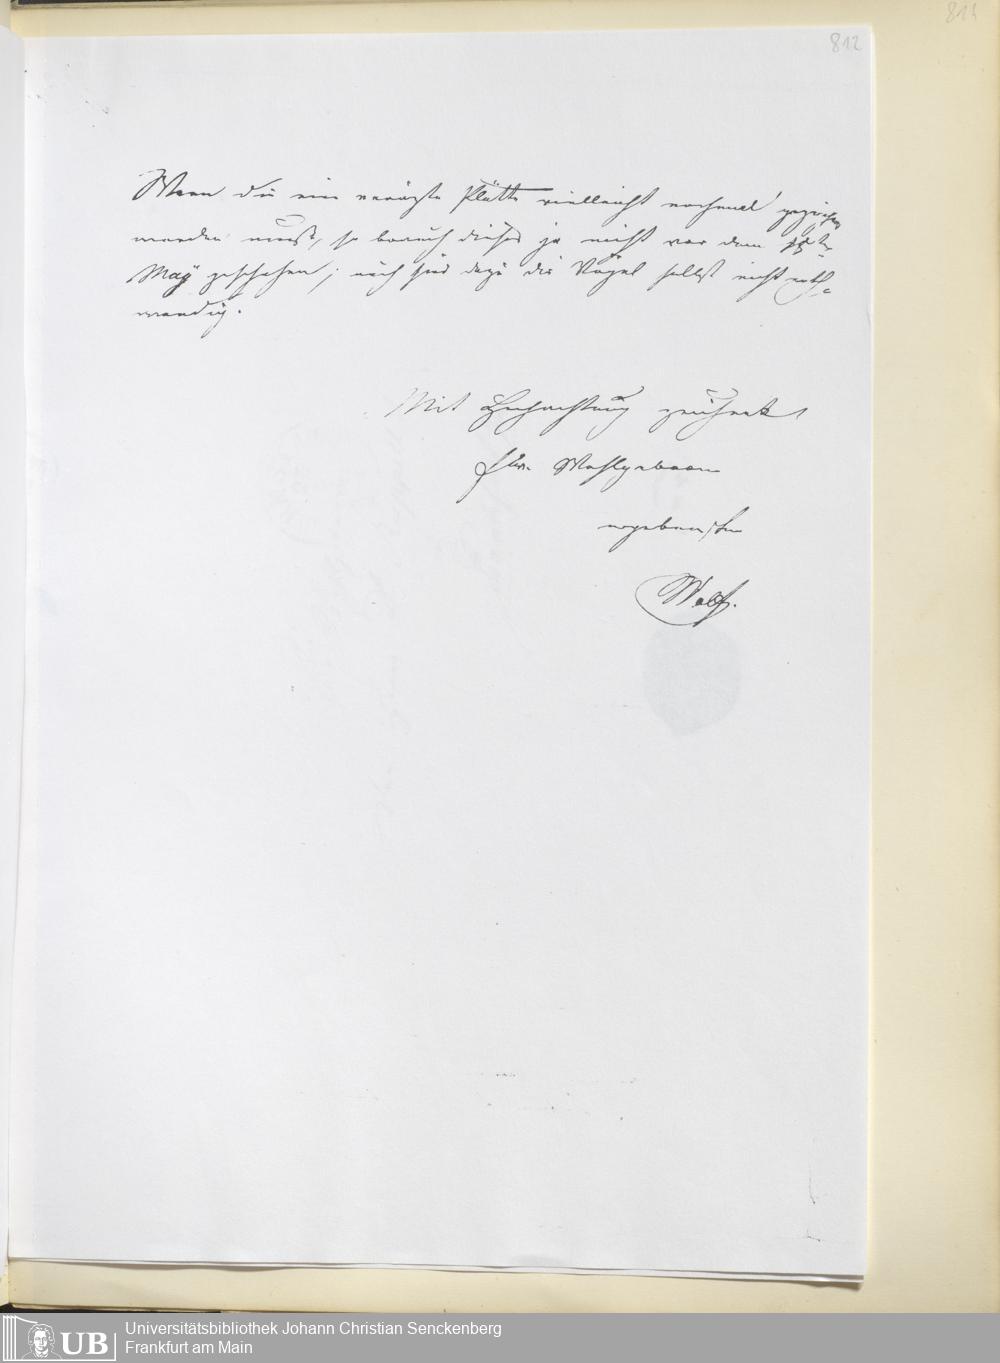 814
812
Wenn die eine Platte vielleicht nochmal gezeichnet
werden muß, so brauch dieses ja nicht vor dem
May geschehen; auch sind dazu die Vögel selbst nicht noth-
wendig.
Mit Hochachtung zeichnet
Ew. Wohlgeboren
ergebenster
Wolf.
UB
Universitätsbibliothek Johann Christian Senckenberg
Frankfurt am Main